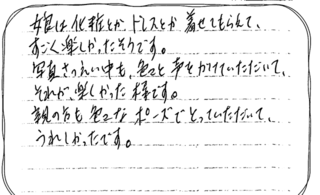 娘は化粧とか、ドレスとか着せてもらえて、
すごく楽しかったそうです。
写真さつえい中も、色々と声をかけていただいて、
それが楽しかった様です。
親の分も色々なポーズでとっていただいて、
うれしかったです。